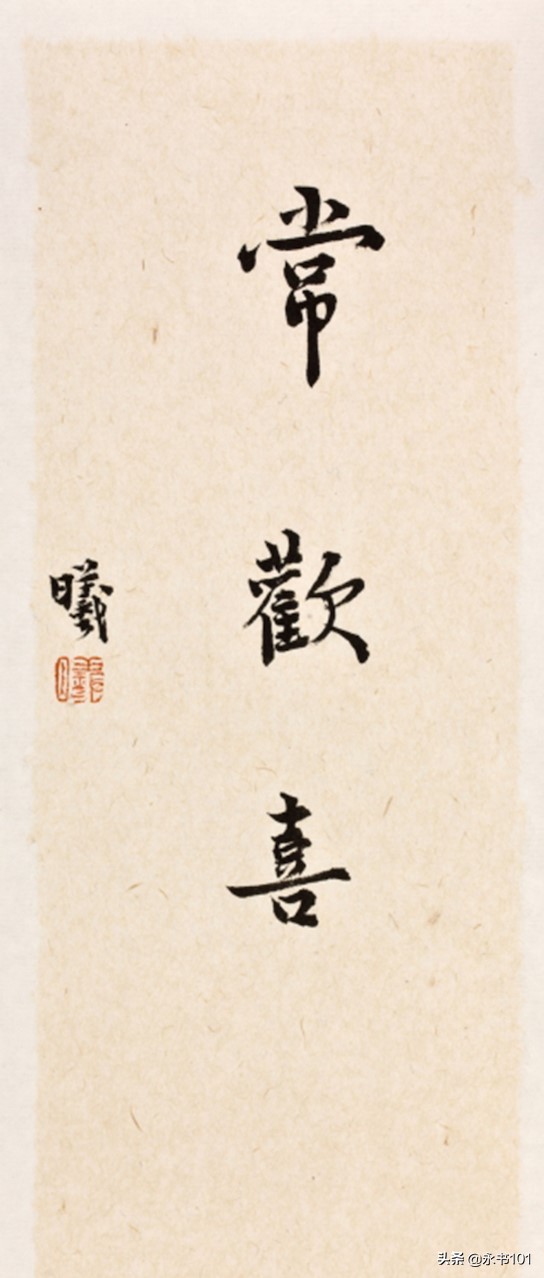 常歡喜
曦
头条 @永书101